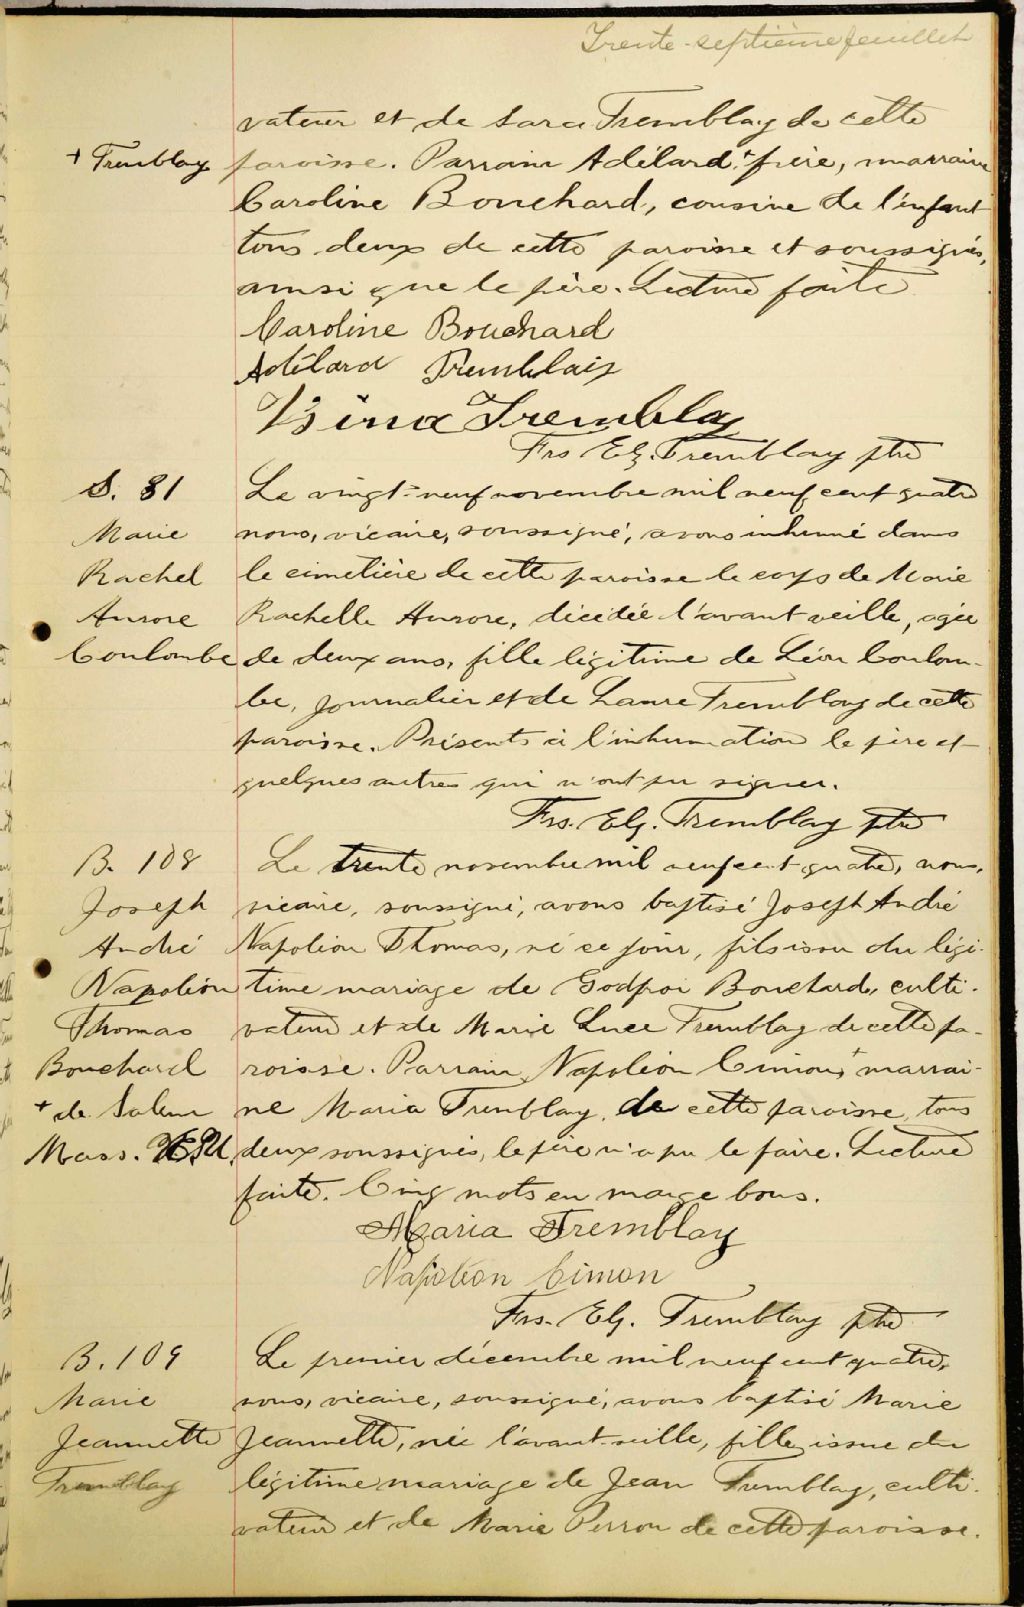 Trente-septième feuillet
vateur et de Sara Tremblay de cette
+ Tremblay paroisse. Parrain Adélard + frère, marraine
Caroline Bouchard, cousine de l'enfant
tous deux de cette paroisse et soussignés,
ainsi que le père. Lecture faite
Caroline Bouchard
Adélard Tremblay
Tremblay
Frs Elz. Tremblay ptre
S. 81 Le vingt-neuf novembre mil neuf cent quatre
Marie nous, vicaire, soussigné, avons inhumé dans
Rachel le cimetière de cette paroisse le corps de Marie
Aurore Rachelle Aurore, décédée l'avant veille, agée
Coulombe de deux ans, fille légitime de Léon Coulom-
be, journalier et de Laure Tremblay de cette
paroisse. Présents à l'inhumation le père et
quelques autres qui n'ont pu signer.
Frs. Elz. Tremblay ptre
B. 108 Le trente novembre mil neuf cent quatre, nous,
Joseph vicaire, soussigné, avons baptisé Joseph André
André Napoléon Thomas, né ce jour, fils issu du légi-
Napoléon time mariage de Godfroi Bouchard, culti-
Thomas vateur et de Marie Luce Tremblay de cette pa-
Bouchard roisse. Parrain Napoléon Cimon + marrai-
+ de Salem ne Maria Tremblay, de cette paroisse, tous
Mass. deux soussignés, le père n'a pu le faire. Lecture
faite. Cinq mots en marge bons.
Maria Tremblay
Napoléon Cimon
Frs. Elz. Tremblay ptre
B. 109 Le premier décembre mil neuf cent quatre,
Marie nous, vicaire, soussigné, avons baptisé Marie
Jeannette Jeannette, née l'avant-veille, fille issue du
Tremblay légitime mariage de Jean Tremblay, culti-
vateur et de Marie Perron de cette paroisse.